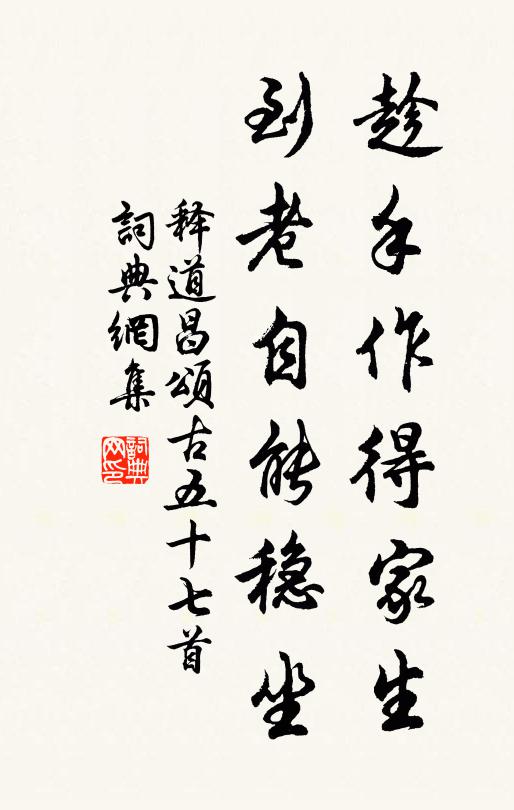 趁手作得家生
到老自能穏坐
释道昌頌古五十七首
詞典網集
詞典网印